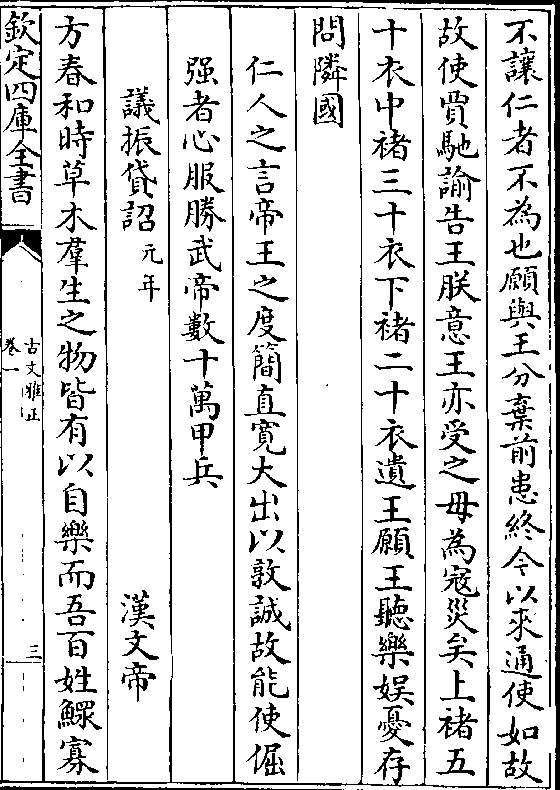 不讓仁者不為也願與王分棄前患終今以來通使如故
故使賈馳諭告王朕意王亦受之毋為寇災矣上褚五
十衣中褚三十衣下褚二十衣遺王願王聽樂娛憂存
問隣國
仁人之言帝王之度簡直寛大出以敦誠故能使倔
强者心服勝武帝數十萬甲兵
議振貸詔元年 漢文帝
方春和時草木羣生之物皆有以自樂而吾百姓鰥寡
欽定四庫全書
古文雅正
卷一
三